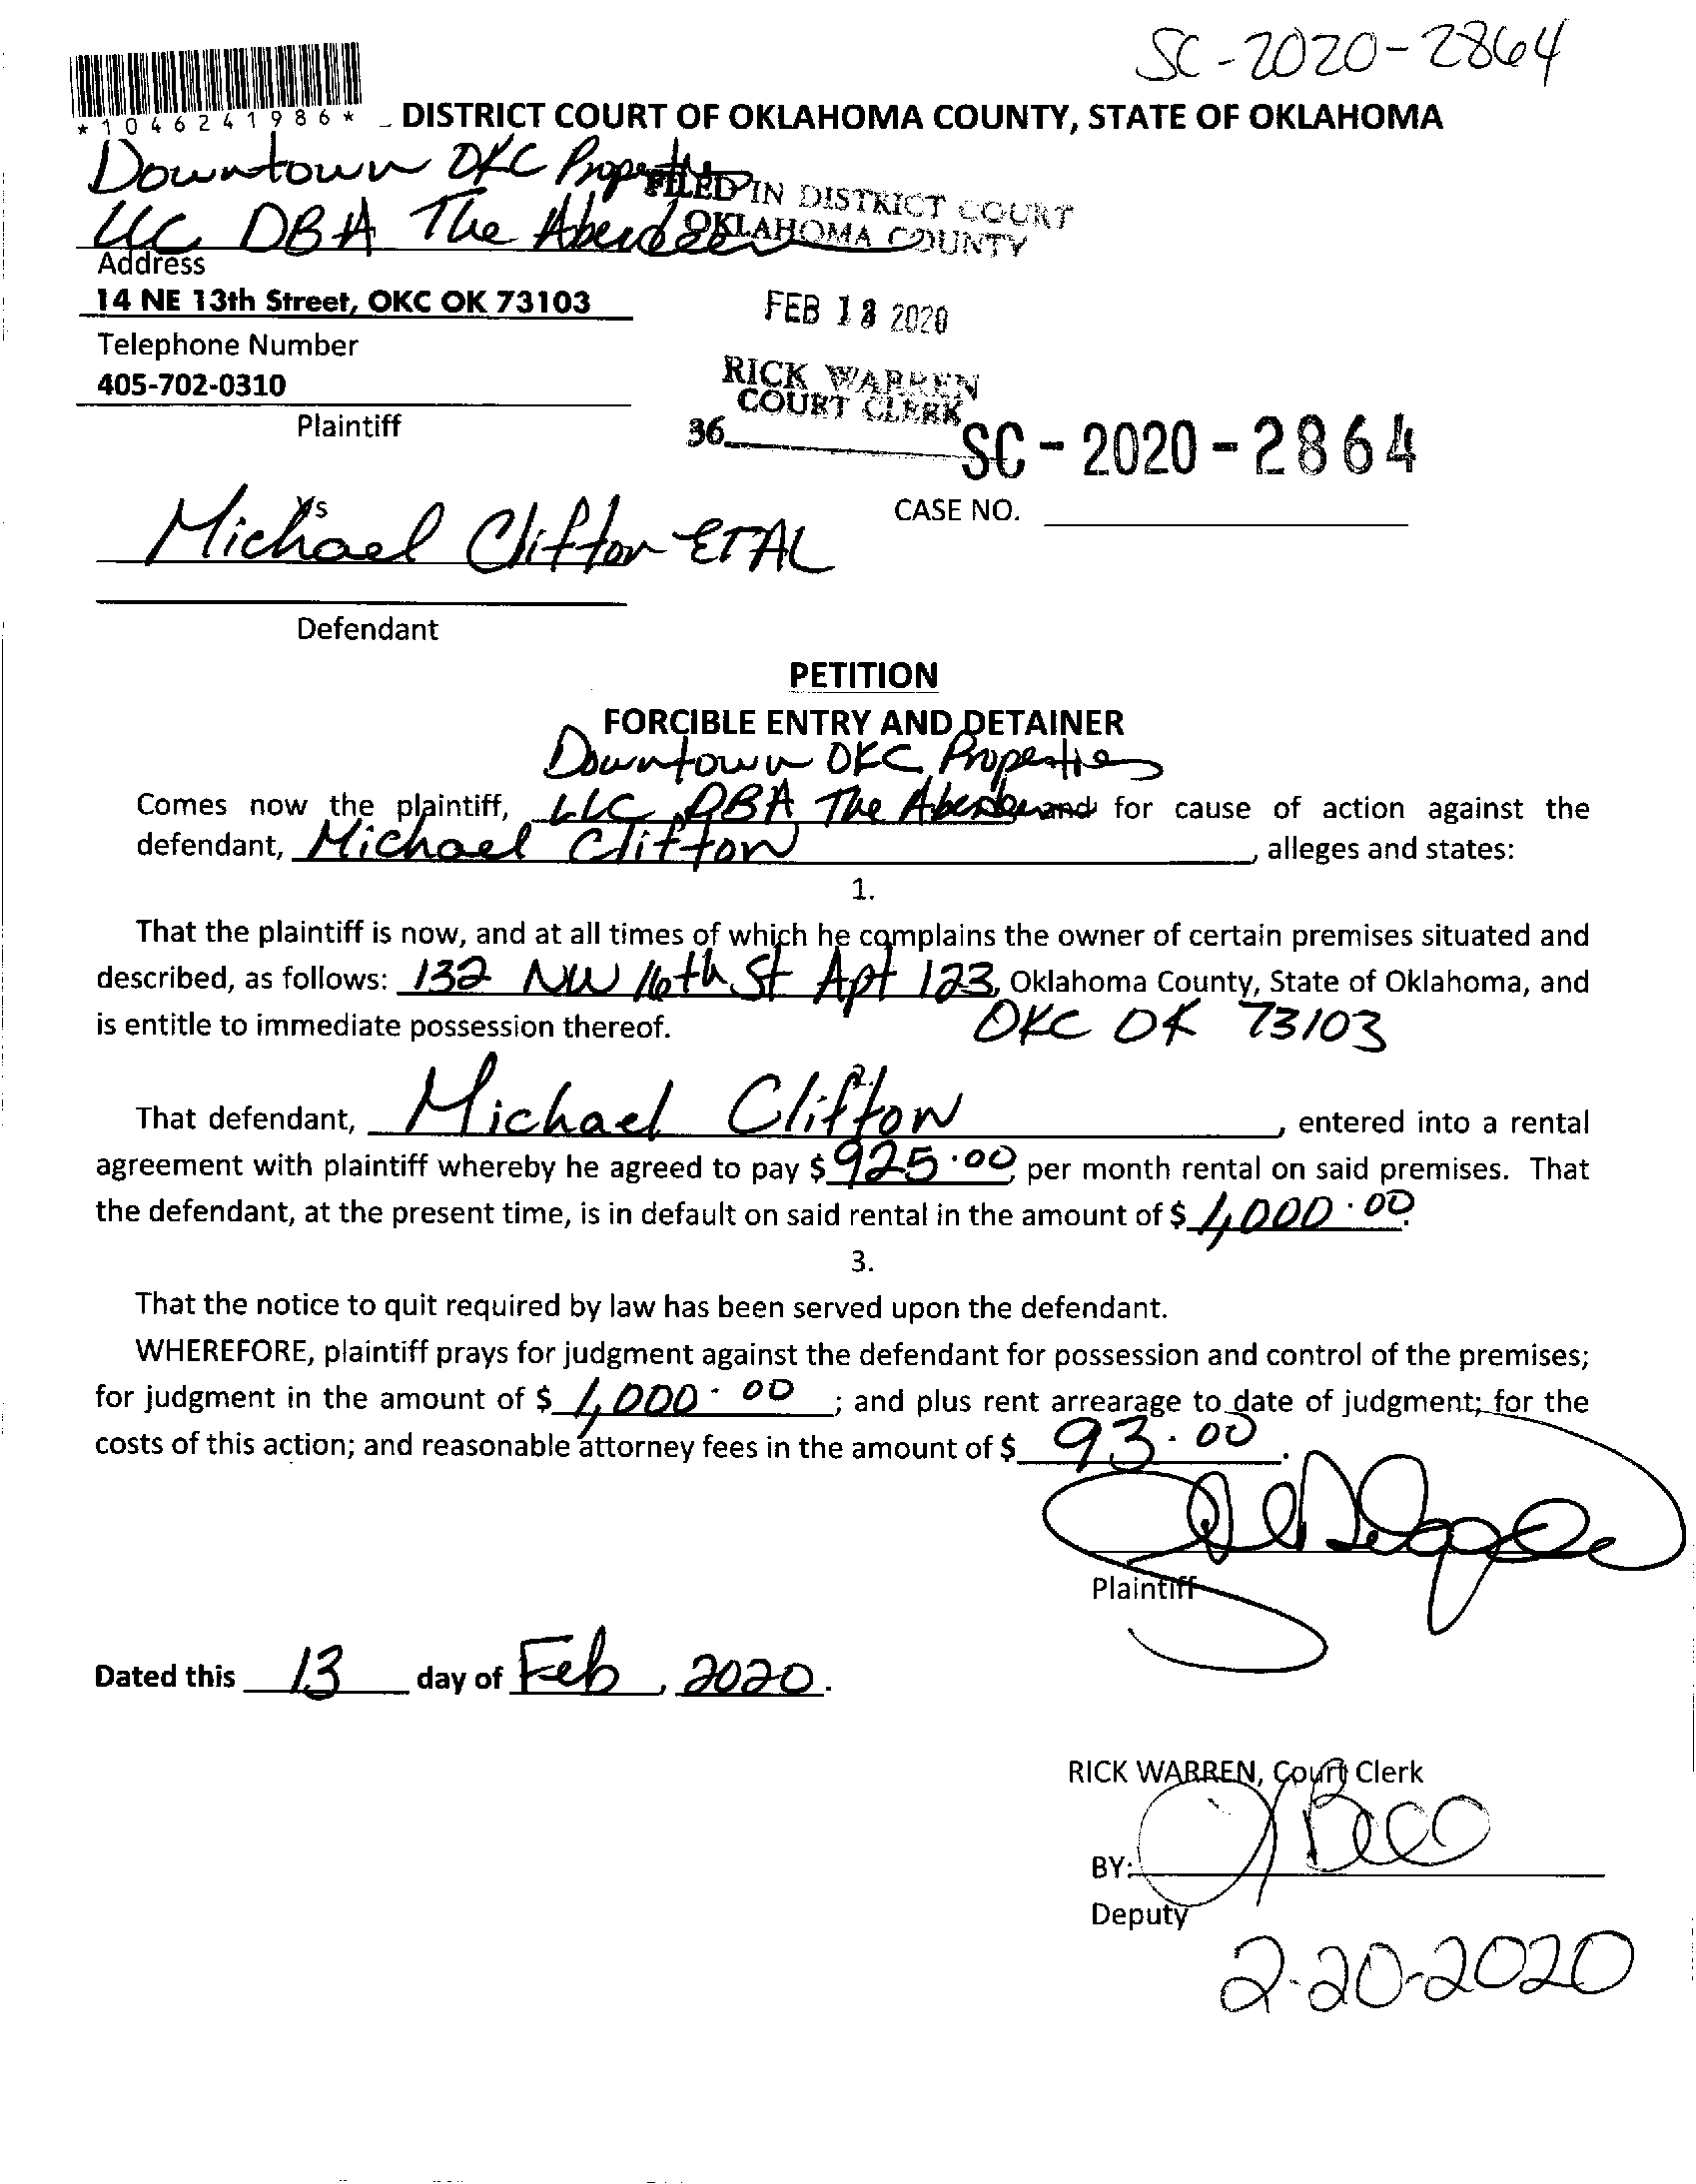 SC-2020-2864
*1046241986*
DISTRICT COURT OF OKLAHOMA COUNTY, STATE OF OKLAHOMA
Downtown OKC
LLC DBA The Aberdeen
FILED IN DISTRICT COURT
OKLAHOMA COUNTY
Address
14 NE 13th Street, OKC OK 73103
FEB 13 2020
Telephone Number
405-702-0310
RICK WARREN
COURT CLERK
Plaintiff
36
SC-2020-2864
vs
CASE NO.
Michael Clifton ETAL
Defendant
PETITION
FORCIBLE ENTRY AND DETAINER
Downtown OKC Properties
Comes now the plaintiff, LLC DBA The Aberdeen and for cause of action against the
defendant, Michael Clifton, alleges and states:
1.
That the plaintiff is now, and at all times of which he complains the owner of certain premises situated and
described, as follows: 132 NW 16th St Apt 123, Oklahoma County, State of Oklahoma, and
is entitle to immediate possession thereof. OKC OK 73103
2.
That defendant, Michael Clifton, entered into a rental
agreement with plaintiff whereby he agreed to pay $ 925.00, per month rental on said premises. That
the defendant, at the present time, is in default on said rental in the amount of $ 1,000.00.
3.
That the notice to quit required by law has been served upon the defendant.
WHEREFORE, plaintiff prays for judgment against the defendant for possession and control of the premises;
for judgment in the amount of $ 1,000.00; and plus rent arrearage to date of judgment; for the
costs of this action; and reasonable attorney fees in the amount of $ 93.00.
Plaintiff
Dated this 13 day of Feb, 2020.
RICK WARREN, Court Clerk
BY:
Deputy
2-20-2020